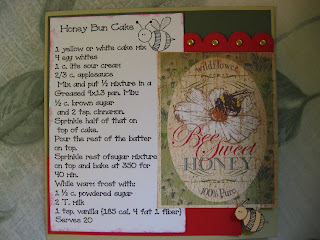 Honey Bun Cake
1 yellow or white cake mix
4 egg whites
1 c. lite sour cream
2/3 c. applesauce
Mix and put ½ mixture in a
Greased 9x13 pan. Mix:
½ c. brown sugar
and 2 tsp. cinnamon.
Sprinkle half of that on
top of cake.
Pour the rest of the batter
on top.
Sprinkle rest of sugar mixture
on top and bake at 350 for
40 min.
While warm frost with:
1 ½ c. powdered sugar
2 T. milk
1 tsp. vanilla (185 cal, 4 fat 1 fiber)
Serves 20
Wildflower
Bee Sweet
HONEY
100% Pure